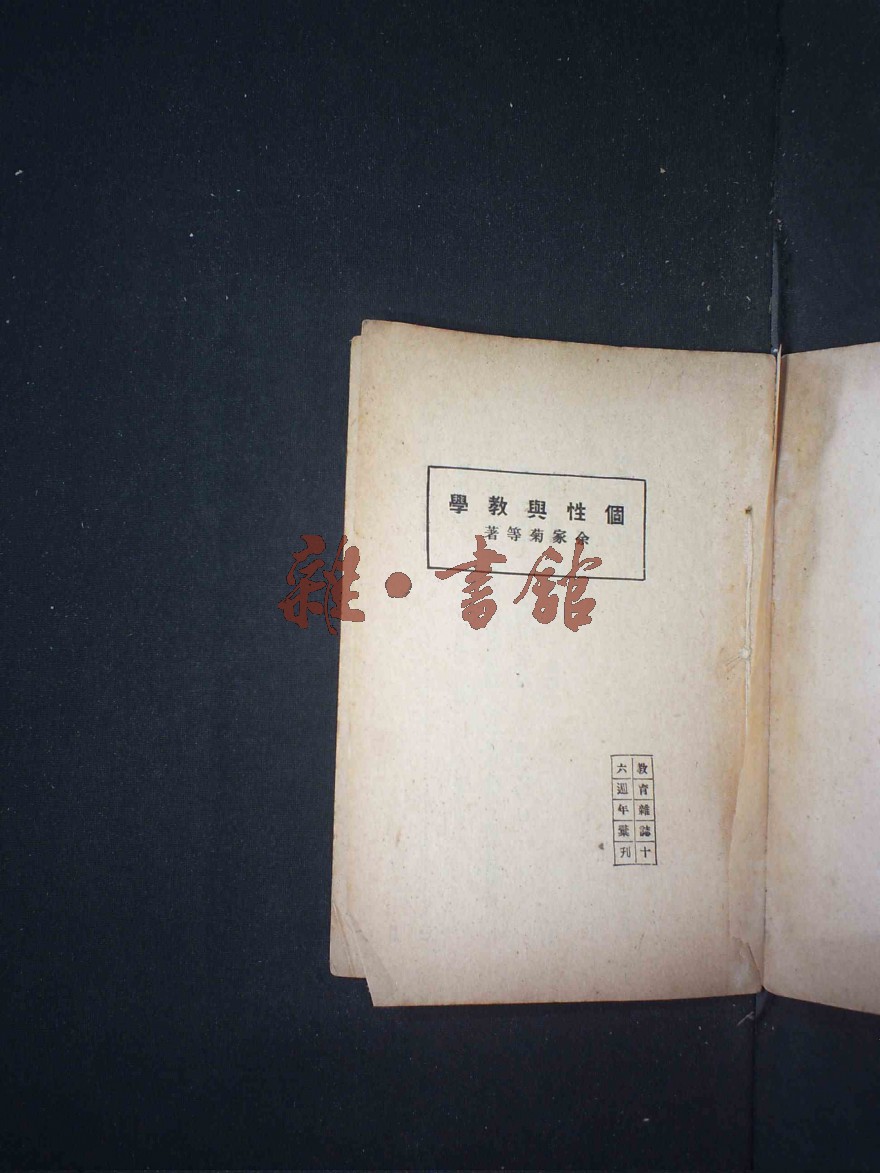 個性與教學
余家菊等著
雜·書館
教育雜誌十
六週年彙刊